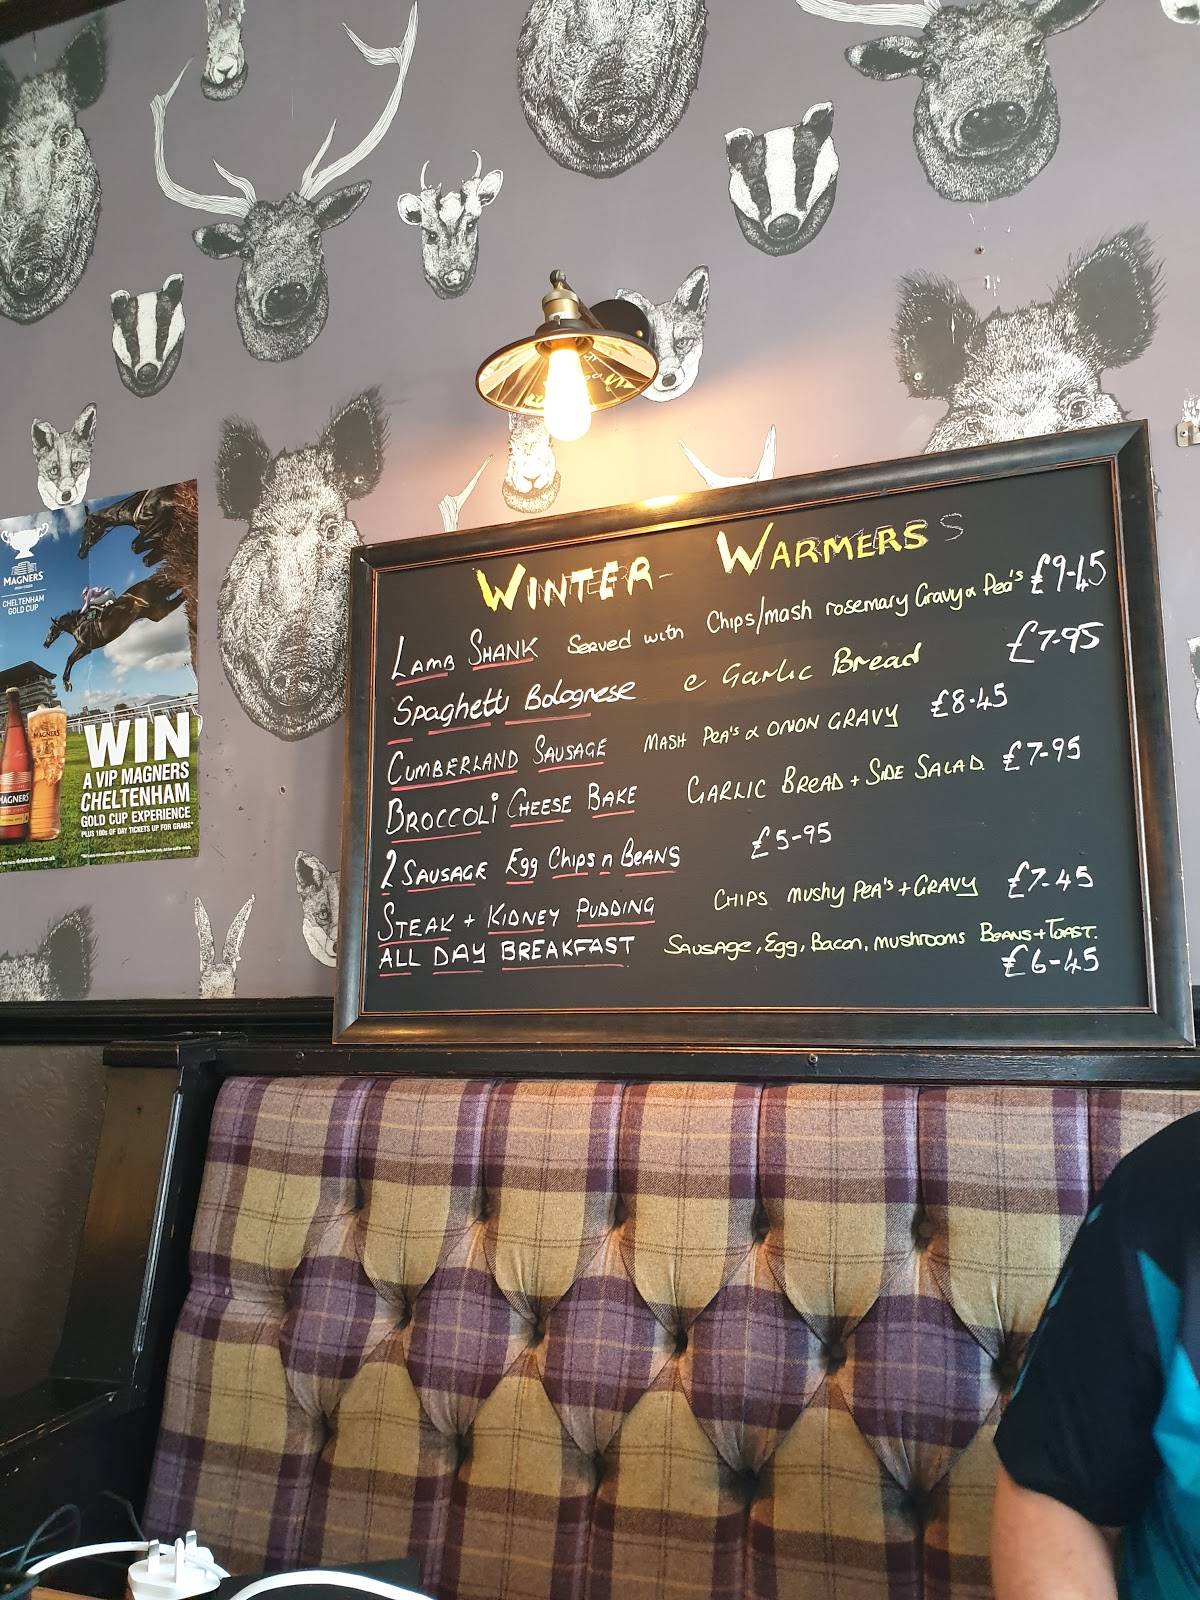 WINTER WARMERS
LAMB SHANK Served with Chips/mash rosemary Gravy & Pea's £9-45
Spaghetti Bolognese e Garlic Bread £7-95
CUMBERLAND SAUSAGE MASH PEA'S & ONION GRAVY £8-45
BROCCOLI CHEESE BAKE GARLIC BREAD + SIDE SALAD £7-95
2 SAUSAGE Egg Chips n BEANS £5-95
STEAK + KIDNEY PUDDING CHIPS mushy PEA's + GRAVY £7-45
ALL DAY BREAKFAST SAUSAGE, Egg, Bacon, mushrooms BEANS + TOAST.
£6-45
MAGNERS
CHELTENHAM
GOLD CUP
WIN
A VIP MAGNERS
CHELTENHAM
GOLD CUP EXPERIENCE
PLUS 100s OF DAY TICKETS UP FOR GRABS*
MAGNERS
MAGNERS
drinkaware.co.uk